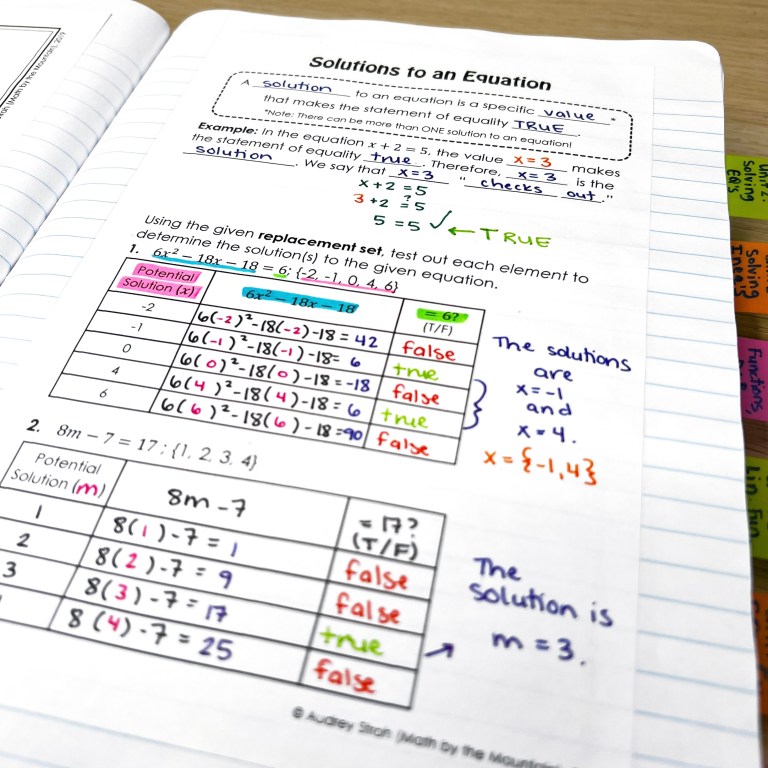 Solutions to an Equation
A solution to an equation is a specific value
that makes the statement of equality TRUE.
*Note: There can be more than ONE solution to an equation!*
Example: In the equation x + 2 = 5, the value x = 3 makes
the statement of equality true. Therefore, x = 3 is the
solution. We say that x = 3 "checks out."
x + 2 = 5
3 + 2 ≟ 5
5 = 5 ✓ ← TRUE
Using the given replacement set, test out each element to
determine the solution(s) to the given equation.
1. 6x² − 18x − 18 = 6; {-2, -1, 0, 4, 6}
Potential Solution (x) 6x² − 18x − 18 = 6? (T/F)
-2 6(-2)² - 18(-2) - 18 = 42 false
-1 6(-1)² - 18(-1) - 18 = 6 true
0 6(0)² - 18(0) - 18 = -18 false
4 6(4)² - 18(4) - 18 = 6 true
6 6(6)² - 18(6) - 18 = 90 false
The solutions
are
x = -1
and
x = 4.
x = {-1, 4}
2. 8m − 7 = 17 ; {1, 2, 3, 4}
Potential Solution (m) 8m - 7 = 17? (T/F)
1 8(1) - 7 = 1 false
2 8(2) - 7 = 9 false
3 8(3) - 7 = 17 true
8(4) - 7 = 25 false
The
solution is
m = 3.
© Audrey Stroh (Math by the Mountain)
Unit 2:
Solving
EQ's
Solving
Ineq's
Functions,
Lin. Fun
(Math by the Mountain), 2019